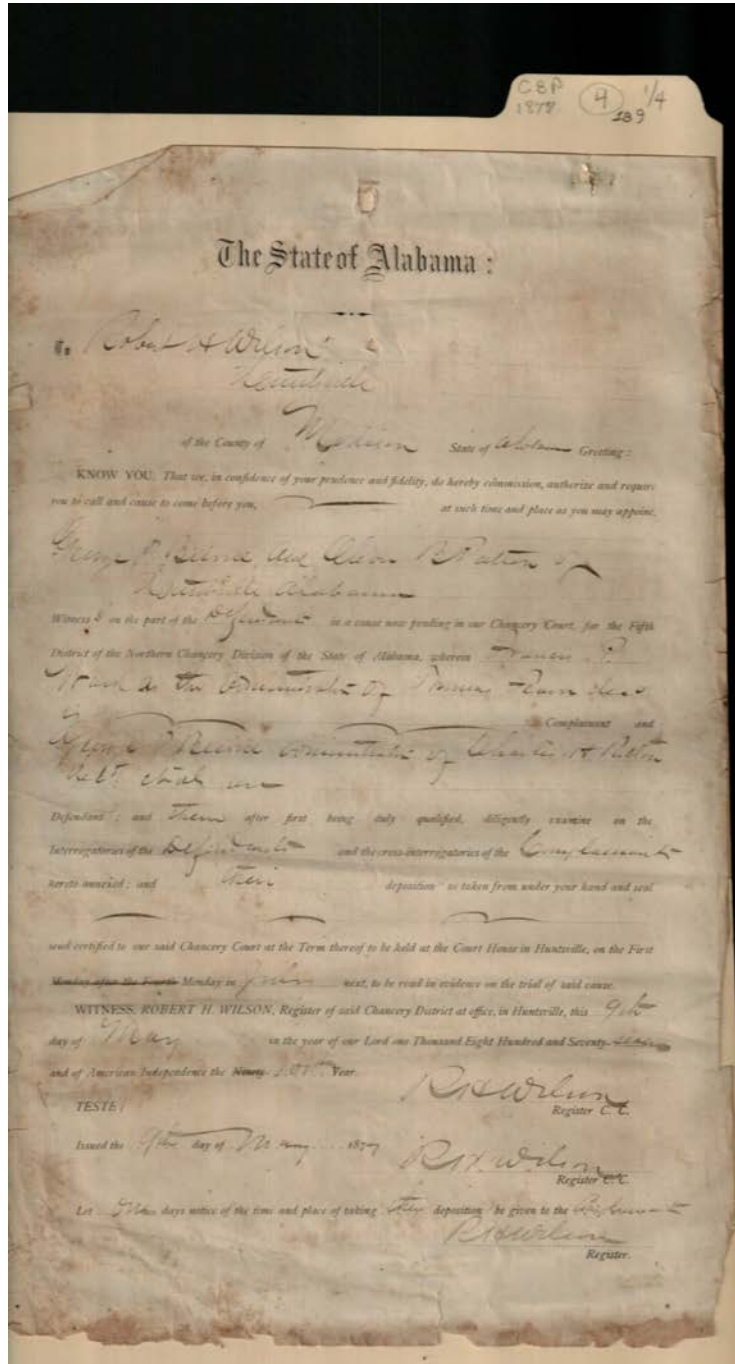 CSP 1/4
1878 4
189
The State of Alabama :
To Robert H Wilson
Huntsville
of the County of Madison State of Alabama Greeting :
KNOW YOU. That we, in confidence of your prudence and fidelity, do hereby commission, authorize and require
you to call and cause to come before you, at such time and place as you may appoint,
George P. Beirne and Oliver B Patton of
Huntsville Alabama
Witness s on the part of the Defendant in a cause now pending in our Chancery Court, for the Fifth
District of the Northern Chancery Division of the State of Alabama, wherein Francis P.
Ward as the administrator of Thomas decd
is Complainant and
George P Beirne administrator of Charles H Patton
decd et al are
Defendant s ; and them after first being duly qualified, diligently examine on the
Interrogatories of the Defendants and the cross-interrogatories of the Complainants
hereto annexed ; and their deposition s so taken from under your hand and seal
send certified to our said Chancery Court at the Term thereof to be held at the Court House in Huntsville, on the First
Monday after the Fourth Monday in next, to be read in evidence on the trial of said cause.
WITNESS, ROBERT H. WILSON, Register of said Chancery District at office, in Huntsville, this 9th
day of May in the year of our Lord one Thousand Eight Hundred and Seventy-seven
and of American Independence the Ninety- Year.
R H Wilson
TESTE :
Register C. C.
Issued the 9th day of May 1877
R H. Wilson
Register C. C.
Let days notice of the time and place of taking their deposition be given to the Complainant
R H Wilson
Register.